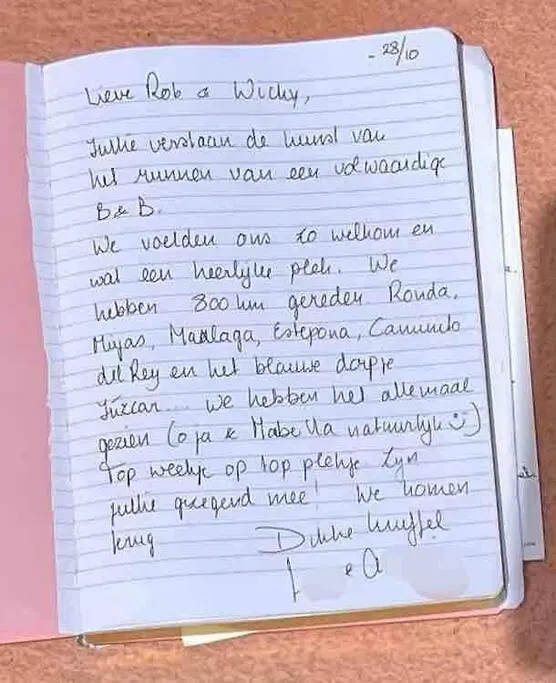 - 28/10
Lieve Rob & Wichy,
Jullie verstaan de kunst van
het runnen van een volwaardige
B&B.
We voelden ons zo welkom en
wat een heerlijke plek. We
hebben 800 km gereden Ronda,
Mijas, Maalaga, Estepona, Caminito
del Rey en het blauwe dorpje
Júzcar... We hebben het allemaal
gezien (o ja & Mabella natuurlijk ☺)
Top weekje op top plekje zijn
jullie gezegend mee! We komen
terug
Dikke knuffel
& A